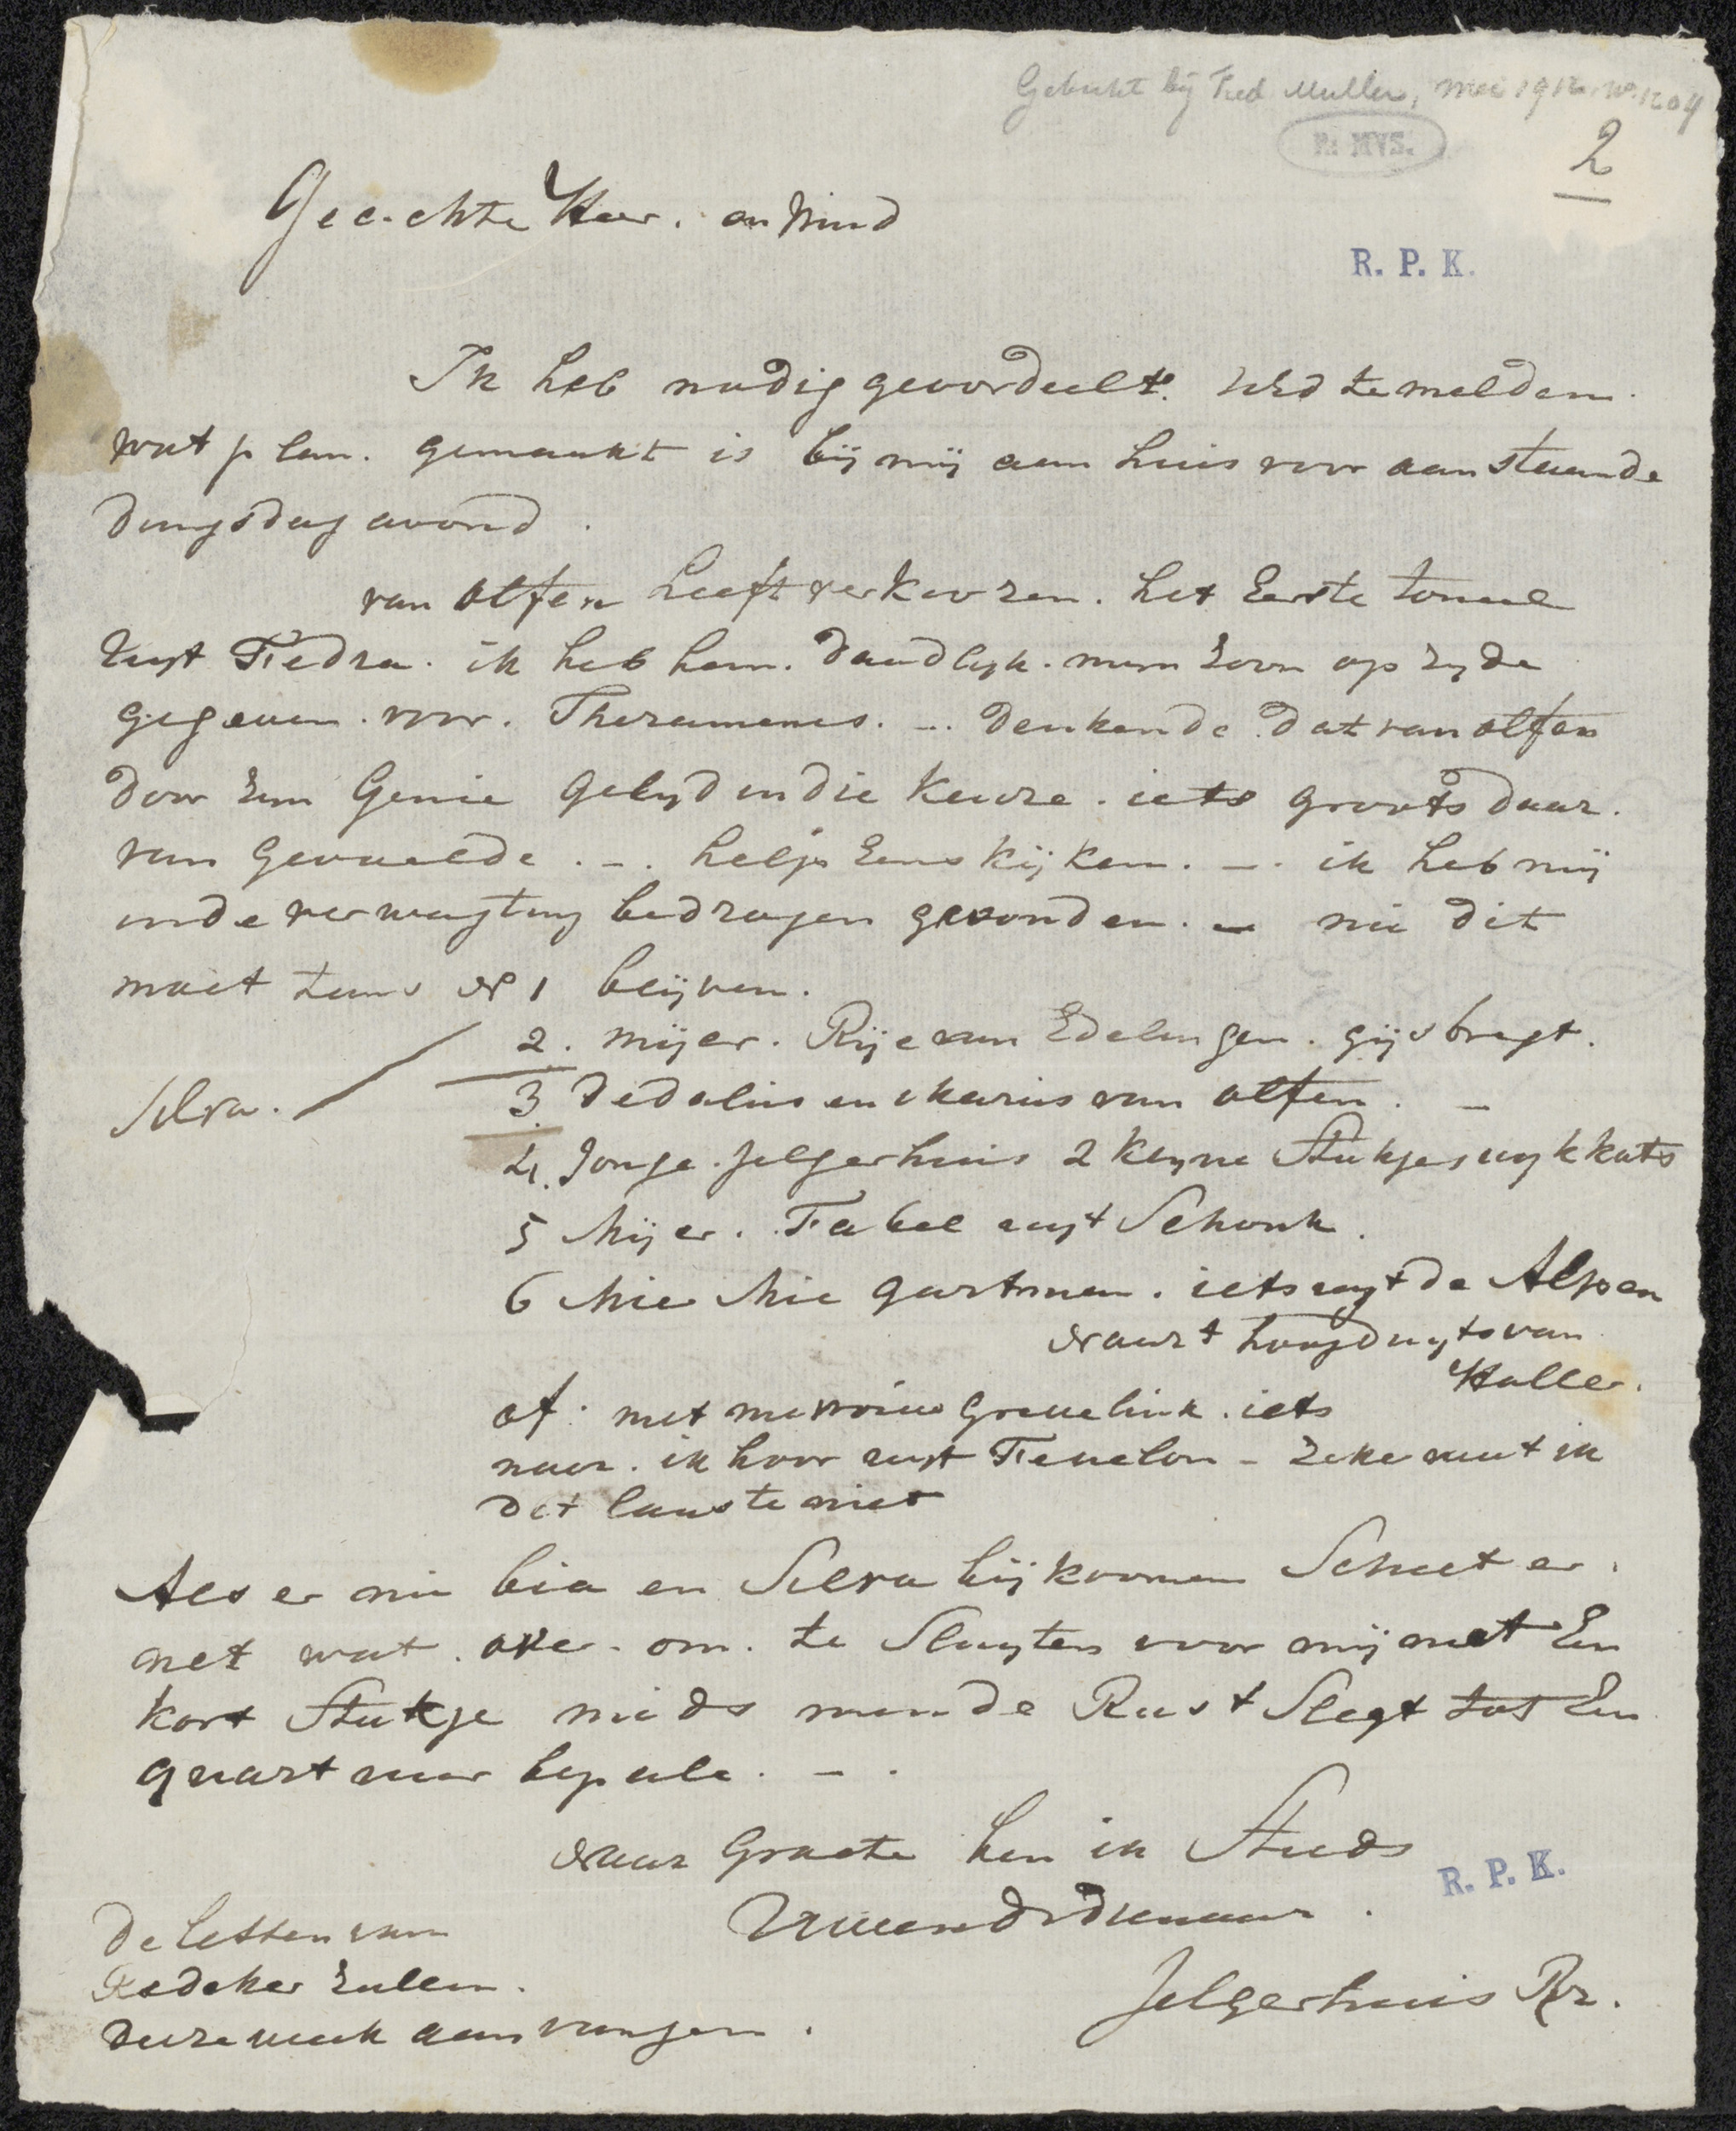 Gekocht bij Fred Muller, mei 1912 no. 1204
R. MVS.
2
Geachte Heer. en Vriend
R. P. K.
Ik heb nodig geoordeelt. UEd te melden.
wat plan. gemaakt is bij mij aan huis voor aanstaande
dingsdag avond.
van olfen heeft verkoozen. het Eerste toneel
uyt Fedra. ik heb hem. daadlyk. mijn zoon op zyde
gegeven. voor. Theramenes. ... denkende dat van olfen
door zyn Genie gelyd in die keuze. iets groots daar.
van gevoelde. -. helps Eens kijken. -. ik heb mij
in de verwagting bedrogen gevonden. - nu dit
moet thans No 1 blijven.
2. Mijer. Rije van Edelingen. gijsbregt.
Silva.
3 Dedalus en Ikarus van olfen. -
4. Jonge. Jelgerhuis 2 kleyne Stukjes
5 Mijer. Fabel uyt Schonk.
6 Mie Mie gartman. iets uyt de Alpen
naar t hoogduyts van
Haller.
of. met mevrouw Grevelink. iets
naar. ik hoor uyt Fenelon - zeker weet ik
dit laaste niet
Als er nu bia en Silva bij koomen Schiet er.
net wat. over. om. te Sluyten voor mij met Een
kort Stukje mids men de Rust Slegt tot Een
quart uur bepale. -.
Naar Groete ben ik Steeds
UwenDdDienaar.
R. P. K.
Jelgerhuis Rz.
De lessen van
Redeker zullen.
deeze week aanvangen.